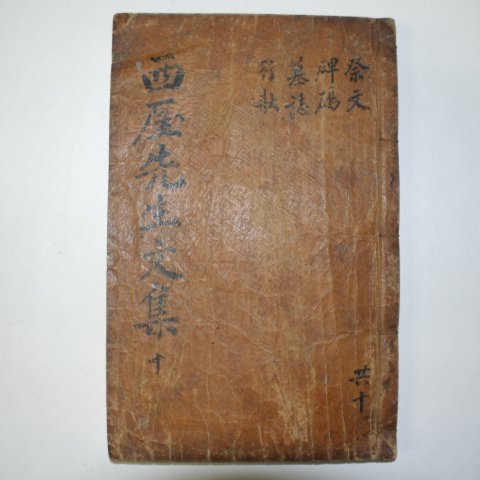 祭文
碑碣
墓誌
行狀
西厓先生文集 十
共十